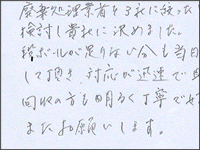 廃棄処理業者を3社に絞った
検討し貴社に決めました。
段ボールが足りない分も当日
して頂き、対応が迅速で
回収の方も明るく丁寧で
またお願いします。